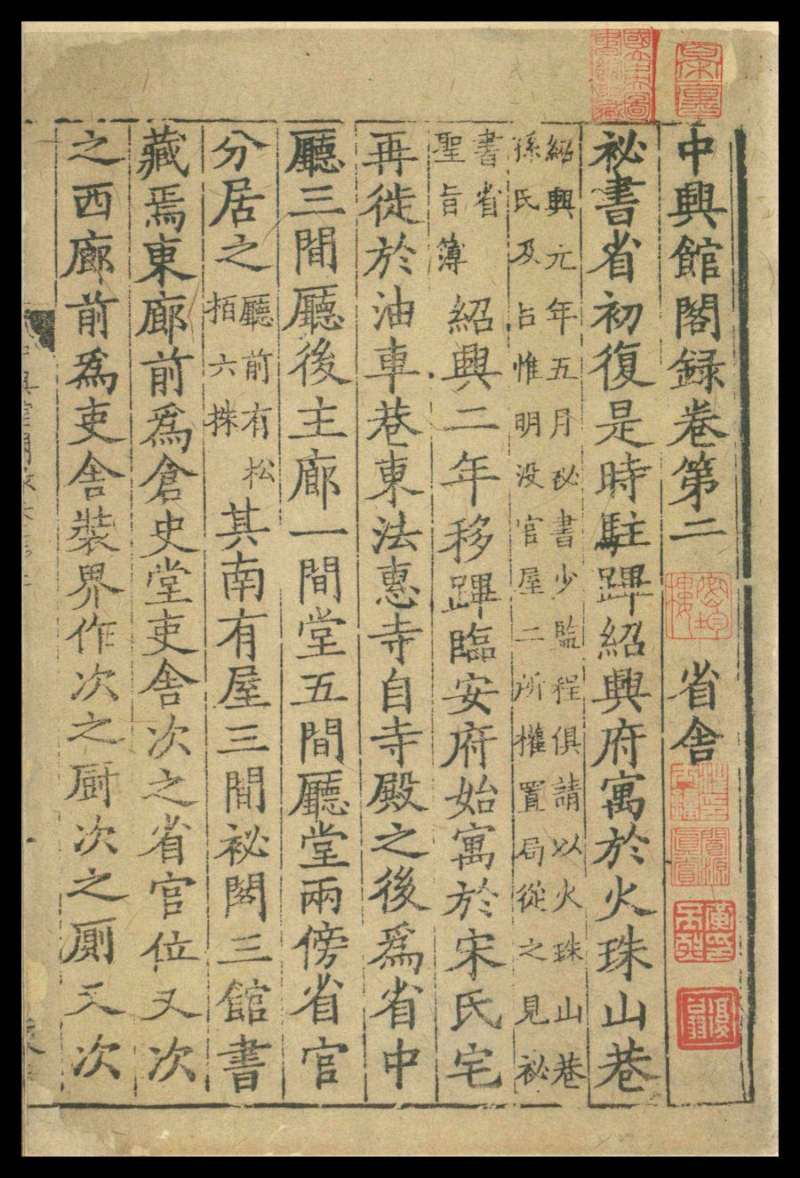 中興館閣録卷第二
省舍
祕書省初復是時駐蹕紹興府寓於火珠山巷
紹興元年五月祕書少監程俱請以火珠山巷
孫氏及呂惟明没官屋二所權置局從之見祕
書省
聖旨簿
紹興二年移蹕臨安府始寓於宋氏宅
再徙於油車巷東法惠寺自寺殿之後爲省中
廳三間廳後主廊一間堂五間廳堂兩傍省官
分居之
廳前有松
栢六株
其南有屋三間祕閣三館書
藏焉東廊前爲倉史堂吏舍次之省官位又次
之西廊前爲吏舍裝界作次之厨次之厠又次